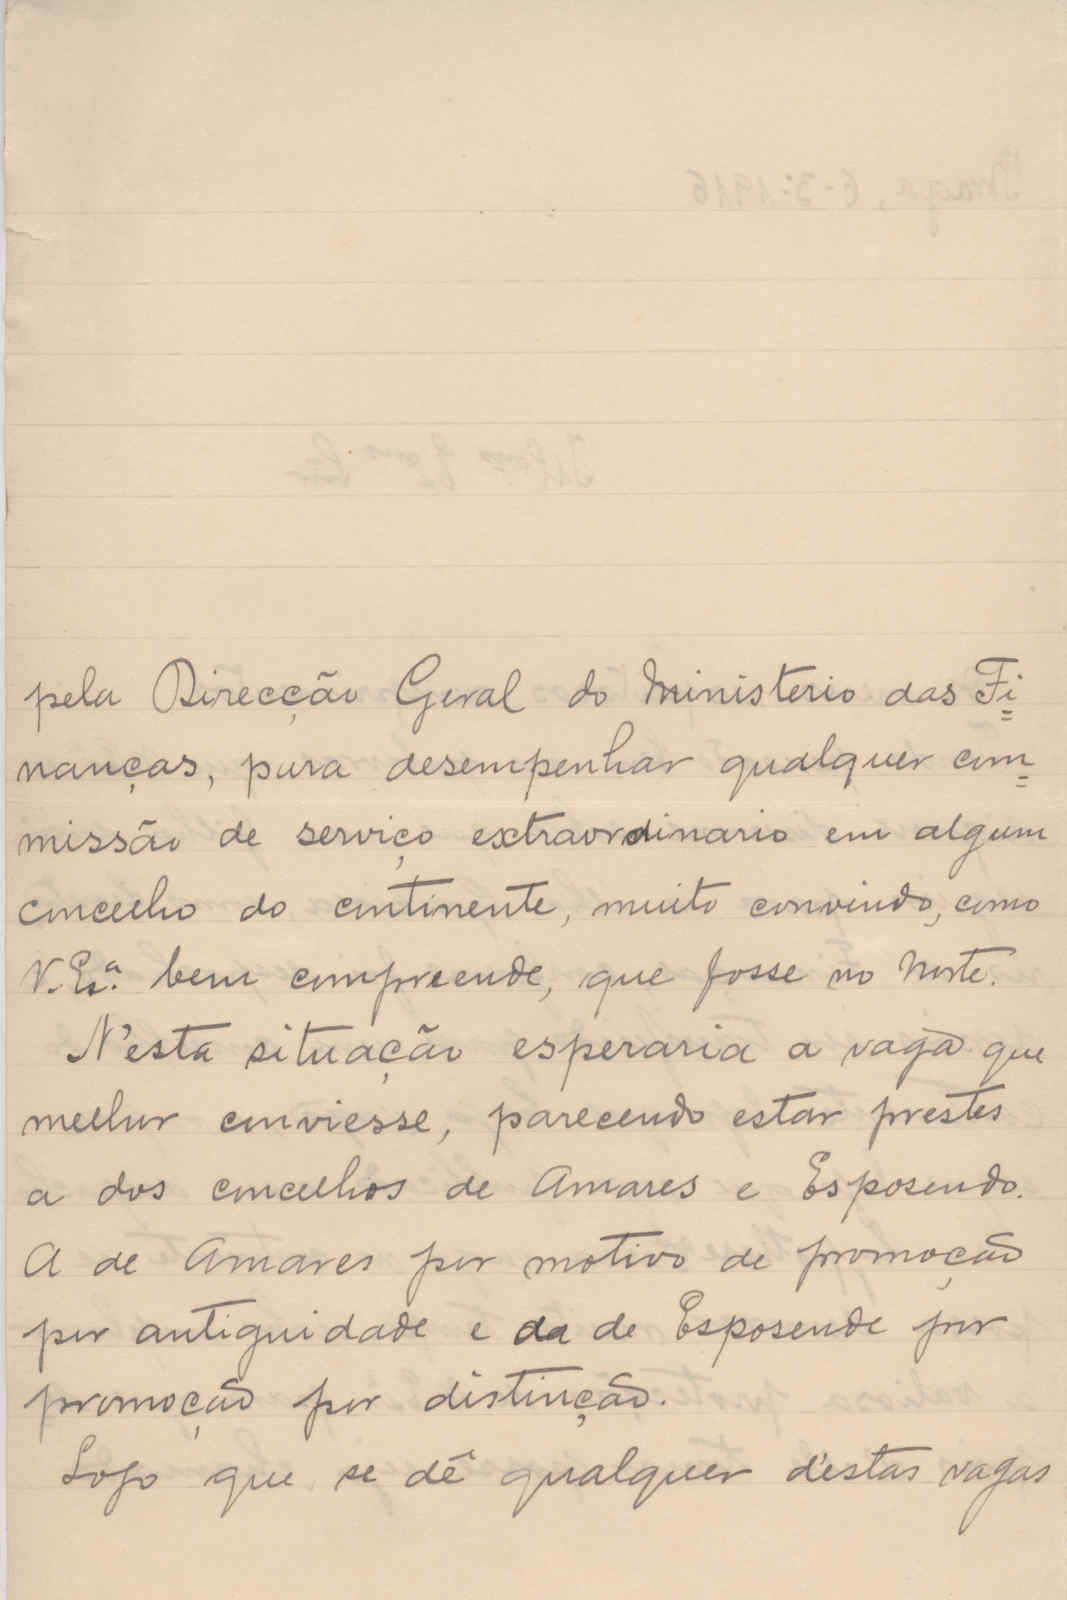 pela Direcção Geral do Ministerio das Fi=
nanças, para desempenhar qualquer com=
missão de serviço extraordinario em algum
concelho do continente, muito convindo, como
V. Ex.ª bem compreende, que fosse no Norte.
N'esta situação esperaria a vaga que
melhor conviesse, parecendo estar prestes
a dos concelhos de Amares e Esposendo.
A de Amares por motivo de promoção
por antiguidade e da de Esposende por
promoção por distinção.
Logo que se dê qualquer d'estas vagas